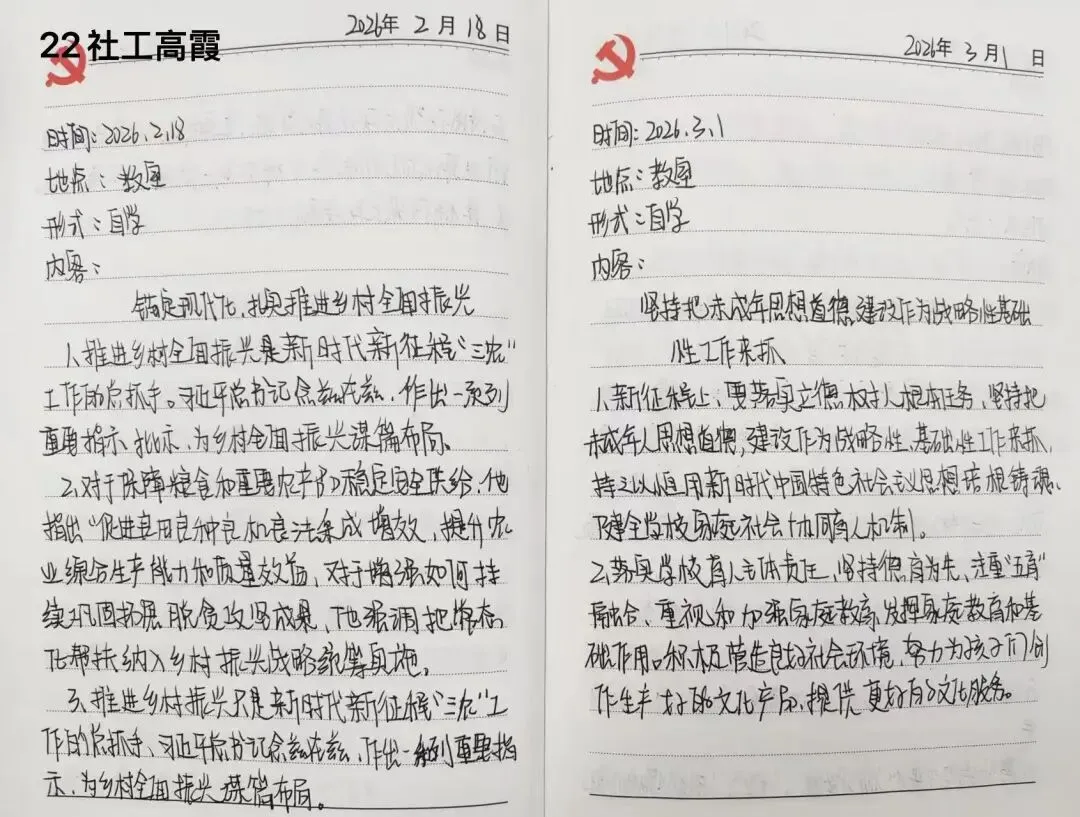 22社工高霞
2026年 2月 18日
时间:2026.2.18
地点:教室
形式:自学
内容:
锚定现代化,扎实推进乡村全面振兴
1.推进乡村全面振兴是新时代新征程“三农”
工作的总抓手。习近平总书记念兹在兹,作出一系列
重要指示、批示,为乡村全面振兴谋篇布局。
2.对于保障粮食和重要农产品稳定安全供给,他
指出“促进良田良种良机良法集成增效,提升农
业综合生产能力和质量效益,对于增强如何持
续巩固拓展脱贫攻坚成果,他强调把常态
化帮扶纳入乡村振兴战略统筹实施。
3.推进乡村振兴只是新时代新征程“三农”工
作的总抓手、习近平总书记念兹在兹,作出一系列重要指
示,为乡村全面振兴谋篇布局。
2026年 3月1 日
时间:2026.3.1
地点:教室
形式:自学
内容:
坚持把未成年思想道德建设作为战略性基础
性工作来抓
1.新征程上,要落实立德树人根本任务,坚持把
未成年人思想道德,建设作为战略性、基础性工作来抓,
持之以恒用新时代中国特色社会主义思想培根铸魂、
健全学校家庭社会协同育人机制。
2.落实学校育人主体责任,坚持德育为先,注重“五育”
融合,重视和加强家庭教育,发挥家庭教育和基
础作用。积极营造良好社会环境,努力为孩子们创
作生产好的文化产品,提供更好的文化服务。